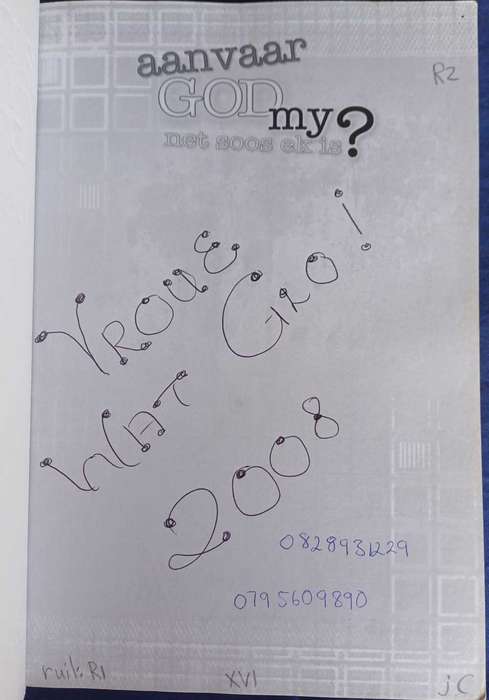 aanvaar
GOD
my?
net soos ek is
R2
VROUE
WAT GRO!
2008
0828931229
0795609890
ruil: R1
XVI
jC